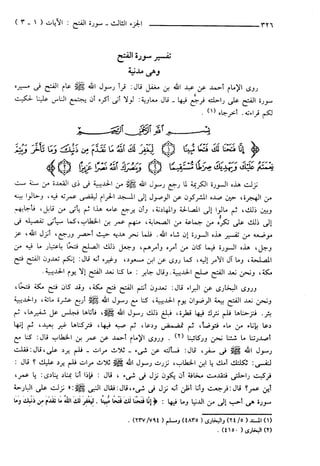 ٣٢٦ الجزء الثالث - سورة الفتح: الآيات (١ - ٣)
تفسير سورة الفتح
وهي مدنية
روى الإمام أحمد عن عبد الله بن مغفل قال: قرأ رسول الله ﷺ عام الفتح في مسيره
سورة الفتح على راحلته فرجع فيها - قال معاوية: لولا أني أكره أن يجتمع الناس علينا لحكيت
لكم قراءته. أخرجاه (١) .
بسم الله الرحمن الرحيم
﴿ إنا فتحنا لك فتحا مبينا ۝ ليغفر لك الله ما تقدم من ذنبك وما تأخر ويتم
نعمته عليك ويهديك صراطا مستقيما ۝ وينصرك الله نصرا عزيزا ۝ ﴾
نزلت هذه السورة الكريمة لما رجع رسول الله ﷺ من الحديبية في ذي القعدة من سنة ست
من الهجرة، حين صده المشركون عن الوصول إلى المسجد الحرام ليقضي عمرته فيه، وحالوا بينه
وبين ذلك، ثم مالوا إلى المصالحة والمهادنة، وأن يرجع عامه هذا ثم يأتي من قابل، فأجابهم
إلى ذلك على تكره من جماعة من الصحابة، منهم عمر بن الخطاب، كما سيأتي تفصيله في
موضعه من تفسير هذه السورة إن شاء الله. فلما نحر هديه حيث أحصر ورجع، أنزل الله، عز
وجل، هذه السورة فيما كان من أمره وأمرهم، وجعل ذلك الصلح فتحا باعتبار ما فيه من
المصلحة، وما آل الأمر إليه، كما روى عن ابن مسعود، وغيره أنه قال: إنكم تعدون الفتح فتح
مكة، ونحن نعد الفتح صلح الحديبية. وقال جابر: ما كنا نعد الفتح إلا يوم الحديبية.
وروى البخاري عن البراء قال: تعدون أنتم الفتح فتح مكة، وقد كان فتح مكة فتحا،
ونحن نعد الفتح بيعة الرضوان يوم الحديبية، كنا مع رسول الله ﷺ أربع عشرة مائة، والحديبية
بئر. فنزحناها فلم نترك فيها قطرة، فبلغ ذلك رسول الله ﷺ، فأتاها فجلس على شفيرها، ثم
دعا بإناء من ماء فتوضأ، ثم تمضمض ودعا، ثم صبه فيها، فتركناها غير بعيد، ثم إنها
أصدرتنا ما شئنا نحن وركائبنا (٢) . وروى الإمام أحمد عن عمر بن الخطاب قال: كنا مع
رسول الله ﷺ في سفر، قال: فسألته عن شيء - ثلاث مرات - فلم يرد علي، قال: فقلت
لنفسي: ثكلتك أمك يا ابن الخطاب، نزرت رسول الله ﷺ ثلاث مرات فلم يرد عليك ؟ قال:
فركبت راحلتي فتقدمت مخافة أن يكون نزل في شيء، قال: فإذا أنا بمناد ينادي: يا عمر،
أين عمر؟ قال: فرجعت وأنا أظن أنه نزل في شيء، قال: فقال النبي ﷺ: نزلت علي البارحة
سورة هي أحب إلي من الدنيا وما فيها : ﴿ إنا فتحنا لك فتحا مبينا . ليغفر لك الله ما تقدم من ذنبك وما
(١) المسند (٥/ ٢٤) والبخاري (٤٨٣٥) ومسلم (٧٩٤/ ٢٣٧)
(٢) البخاري (٤١٥٠) .